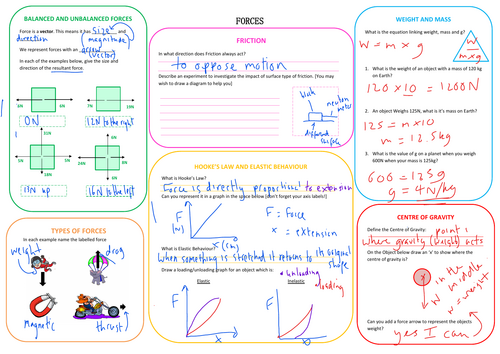 FORCES
BALANCED AND UNBALANCED FORCES
Force is a vector. This means it has size and
direction (magnitude)
We represent forces with an arrow
(vector)
In each of the examples below, give the size and
direction of the resultant force.
6N 6N 7N 19N
0N 12N to the right
31N 5N
8N 8N 23N 7N
18N 5N
13N up 16N to the left
TYPES OF FORCES
In each example name the labelled force
weight drag
magnetic thrust
FRICTION
In what direction does Friction always act?
to oppose motion
Describe an experiment to investigate the impact of surface type of friction. (You may
wish to draw a diagram to help you)
newton
meter
different
surface
HOOKE'S LAW AND ELASTIC BEHAVIOUR
What is Hooke's Law?
Force is directly proportional to extension
Can you represent it in a graph in the space below (don't forget your axis labels!)
F
(N)
x (cm)
F = Force
x = extension
What is Elastic Behaviour?
When something is stretched it returns to its original
shape
Draw a loading/unloading graph for an object which is:
unloading
loading
Elastic Inelastic
F F
x x
WEIGHT AND MASS
What is the equation linking weight, mass and g?
W = m x g
W
m x g
1. What is the weight of an object with a mass of 120 kg
on Earth?
120 x 10 = 1200N
2. An object Weighs 125N, what is it's mass on Earth?
125 = m x 10
m = 12.5kg
3. What is the value of g on a planet when you weigh
600N when your mass is 125kg?
600 = 125g
g = 4N/kg
CENTRE OF GRAVITY
Define the Centre of Gravity: point
where gravity (weight) acts
On the Object below draw an 'x' to show where the
centre of gravity is?
x
in the
middle
W
W = weight
Can you add a force arrow to represent the objects
weight?
yes I can